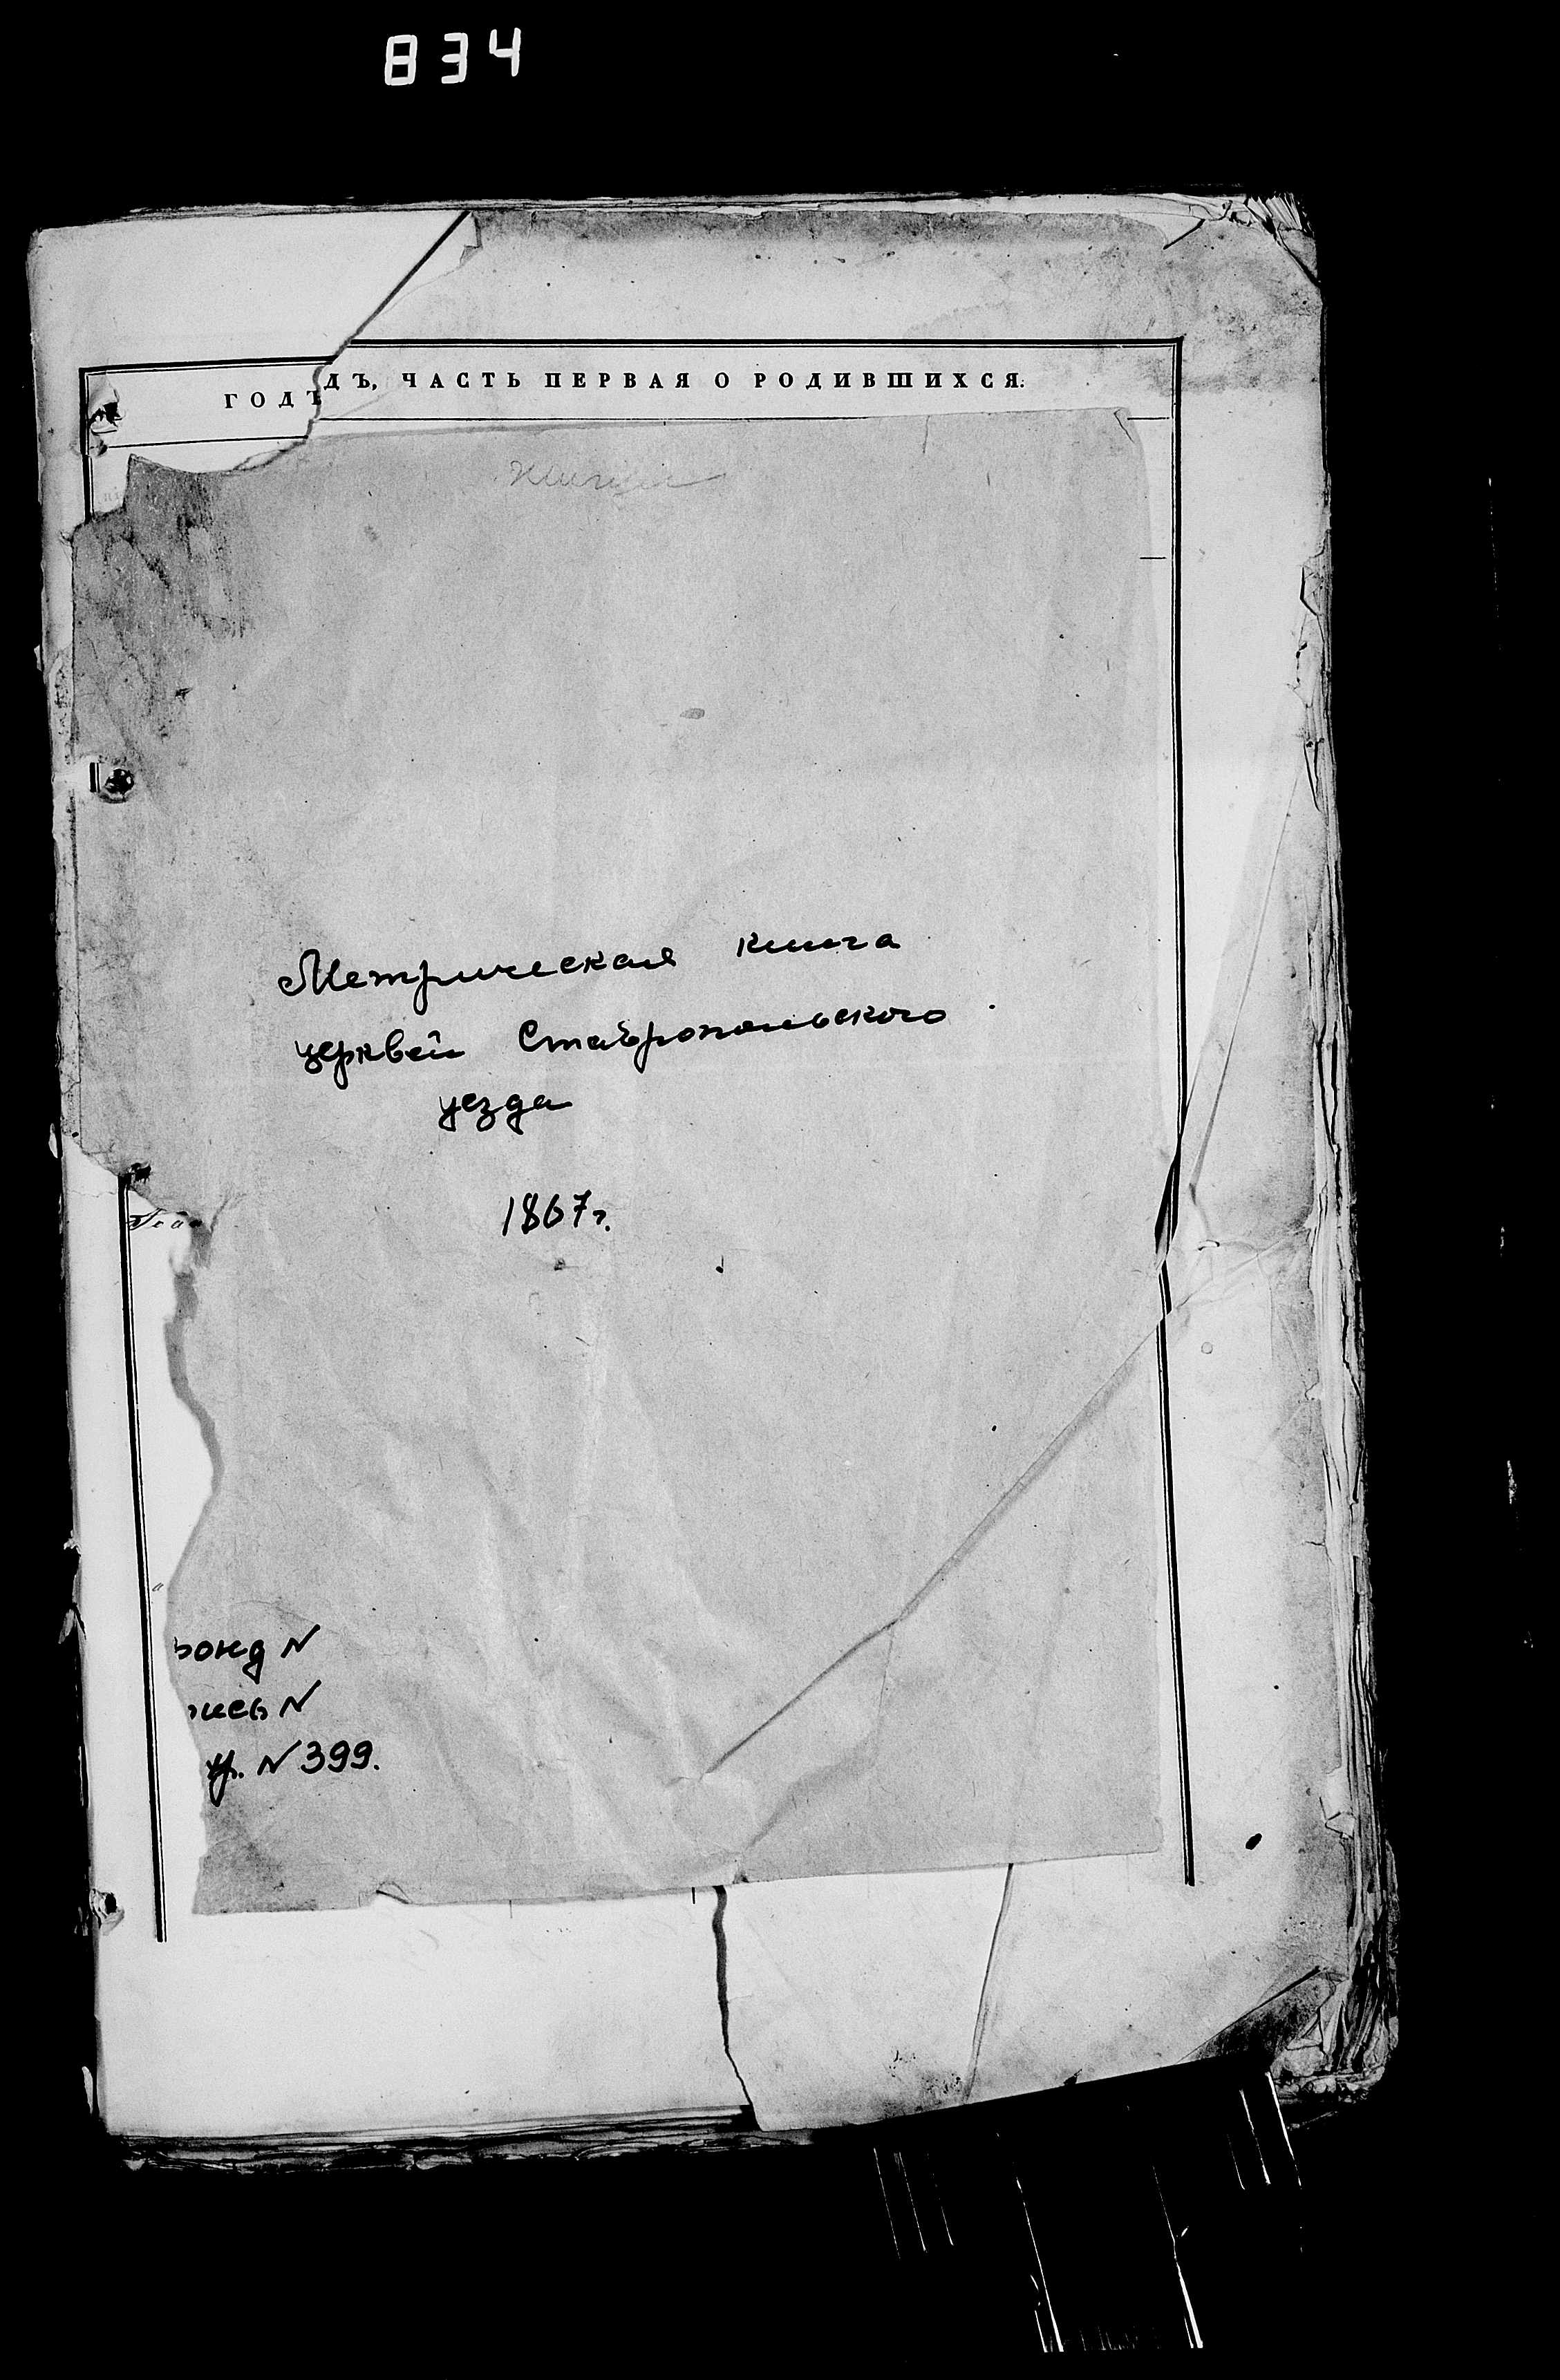 834
ДЪ, ЧАСТЬ ПЕРВАЯ О РОДИВШИХСЯ.
ГОДЪ
Метрическая книга
церквей Ставропольского
уезда
1867г.
фонд N
пись N
хр. N 399.